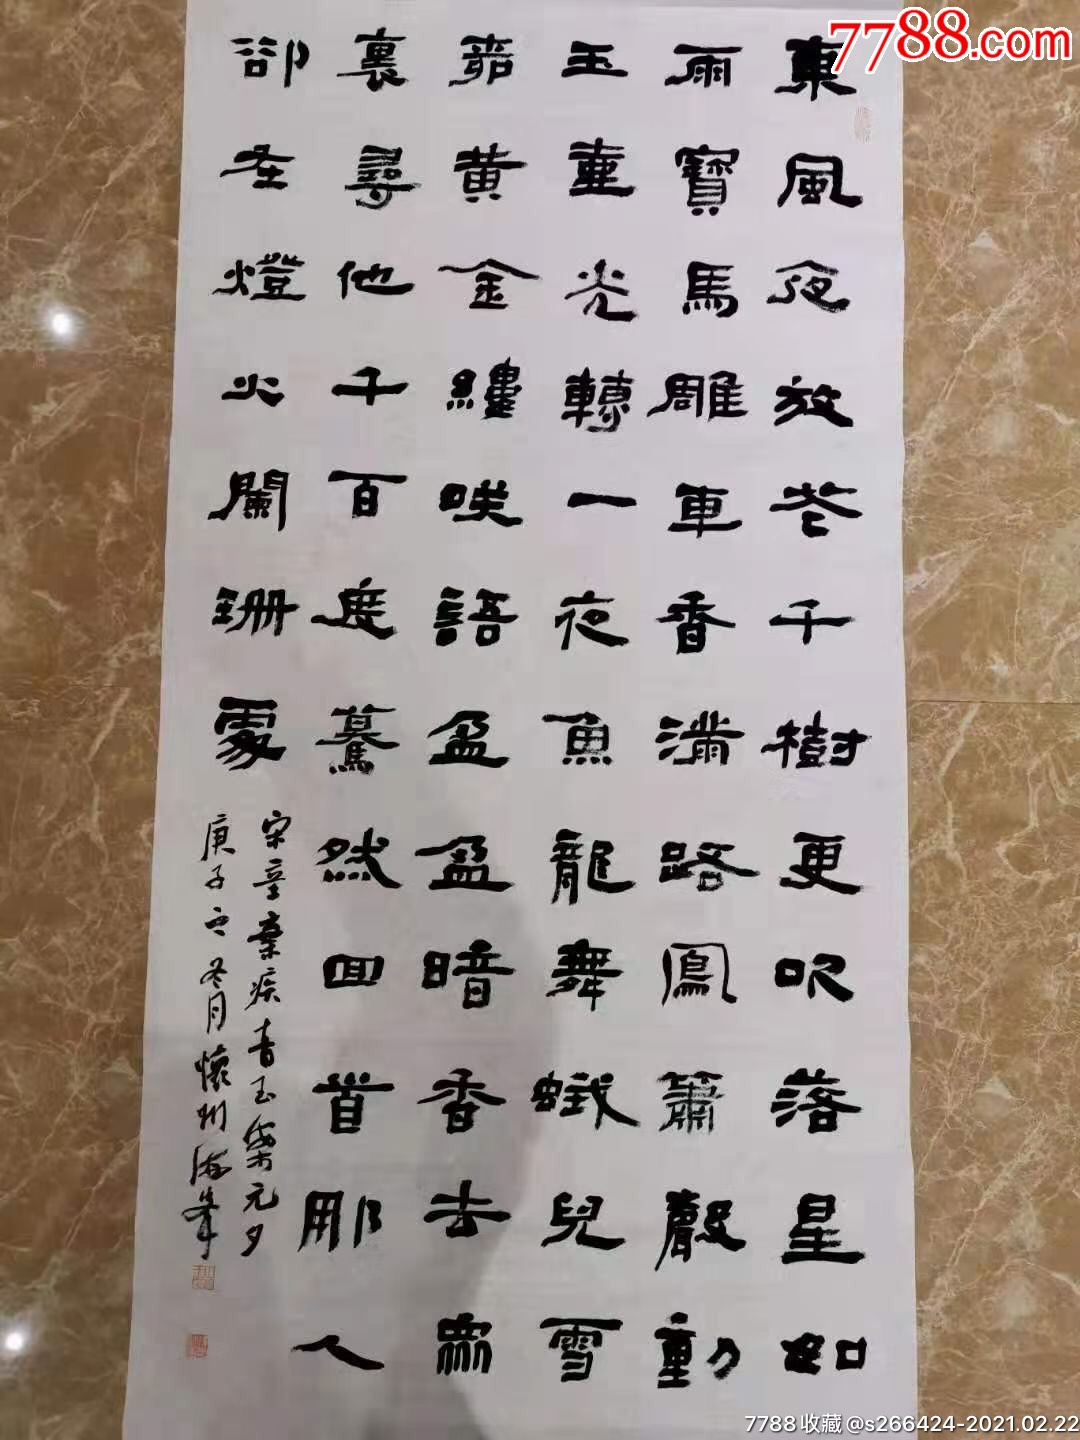 東風夜放花千樹更吹落星如
雨寶馬雕車香滿路鳳簫聲動
玉壺光轉一夜魚龍舞蛾兒雪
茆黃金縷咲語盈盈暗香去眾
裏尋他千百度驀然回首那人
卻在燈火闌珊處
宋辛棄疾青玉案元夕
庚子之冬月懷州海峯
7788.com
7788收藏@s266424-2021.02.22